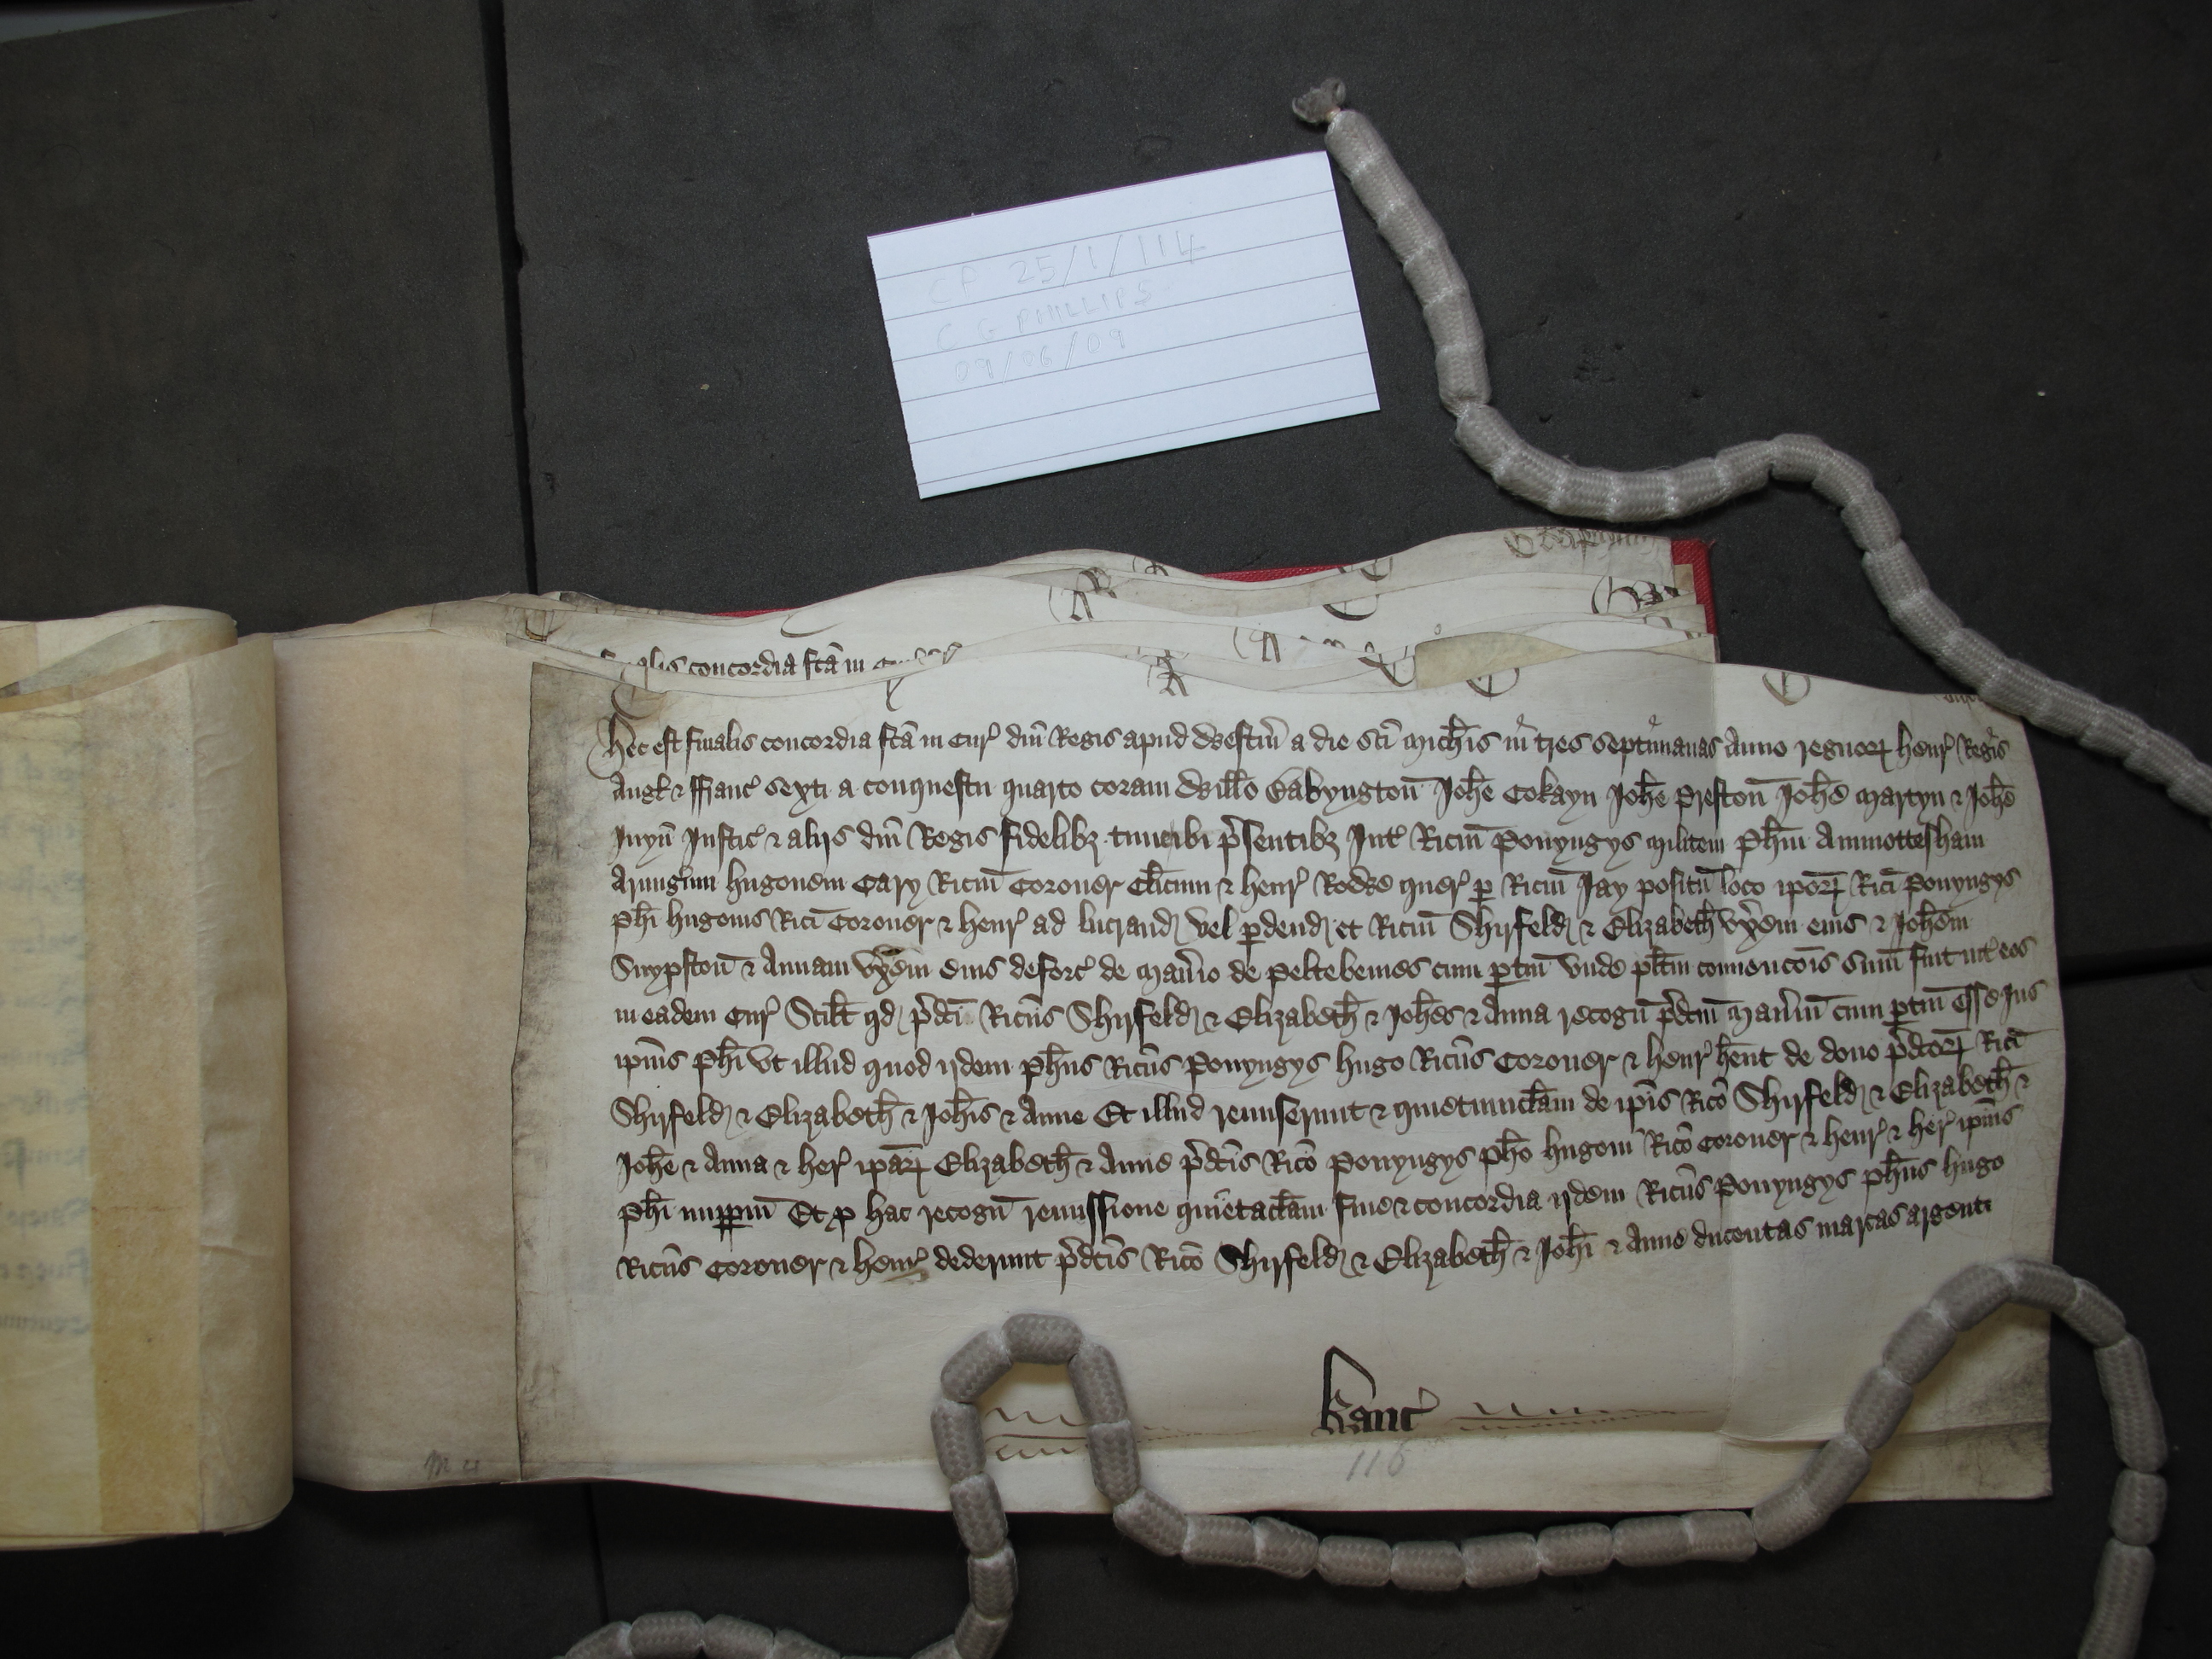 CP 25/1/114
C G PHILLIPS
09/06/09
concordia fcā in
Hec est finalis concordia fcā in Cur̾ dn̄i Regis apud Westm̄ a die Scī Mich̄is in tres septimanas Anno regnoꝝ Henr̾ Regis
Angl̄ & ffranc̾ sexti a conquestu quarto coram Will̄o Babyngton̄ Joh̄e Cokayn Joh̄e Preston̄ Joh̄e Martyn & Joh̄e
Juyn̄ Justic̾ & alijs dn̄i Regis fidelibꝫ tunc ibi p̄sentibꝫ Int̾ Ric̄m Ponyngys militem Ph̄m Ammottesham
Armig̾um Hugonem Cary Ric̄m Coroner Cl̄icum & Henr̾ Rowe quer̾ ꝑ Ric̄m Jay positū loco ip̄oꝝ Ric̄i Ponyngys
Ph̄i Hugonis Ric̄i Coroner & Henr̾ ad lucrand̾ vel ꝑdend̾ et Ric̄m Shirfeld̾ & Elizabeth̄ vx̄em eius & Joh̄em
Snypston̄ & Annam vx̄em eius deforc̾ de Man̄io de Peltebemes cum ꝑtin̄ vnde pl̄itm conuenc̄ois sum̄ fuit int̾ eos
in eadem Cur̾ Scil̄t qd̾ p̄dc̄i Ric̄us Shirfeld̾ & Elizabeth̄ & Joh̄es & Anna recogn̄ p̄dc̄m Man̄ium cum ꝑtin̄ esse Jus
ip̄ius Ph̄i vt illud quod ijdem Ph̄us Ric̄us Ponyngys Hugo Ric̄us Coroner & Henr̾ h̄ent de dono p̄dc̄oꝝ Ric̄i
Shirfeld̾ & Elizabeth̄ & Joh̄is & Anne Et illud remiserunt & quietumcl̄am de ip̄is Ric̄o Shirfeld̾ & Elizabeth̄ &
Joh̄e & Anna & her̾ ip̄aꝝ Elizabeth̄ & Anne p̄dc̄is Ric̄o Ponyngys Ph̄o Hugoni Ric̄o Coroner & Henr̾ & her̾ ip̄ius
Ph̄i inꝑꝑm̄ Et ꝓ hac recogn̄ remissione quietacl̄am fine & concordia ijdem Ric̄us Ponyngys Ph̄us Hugo
Ric̄us Coroner & Henr̾ dederunt p̄dc̄is Ric̄o Shirfeld̾ & Elizabeth̄ & Joh̄i & Anne ducentas marcas argenti
Kanc̾
116